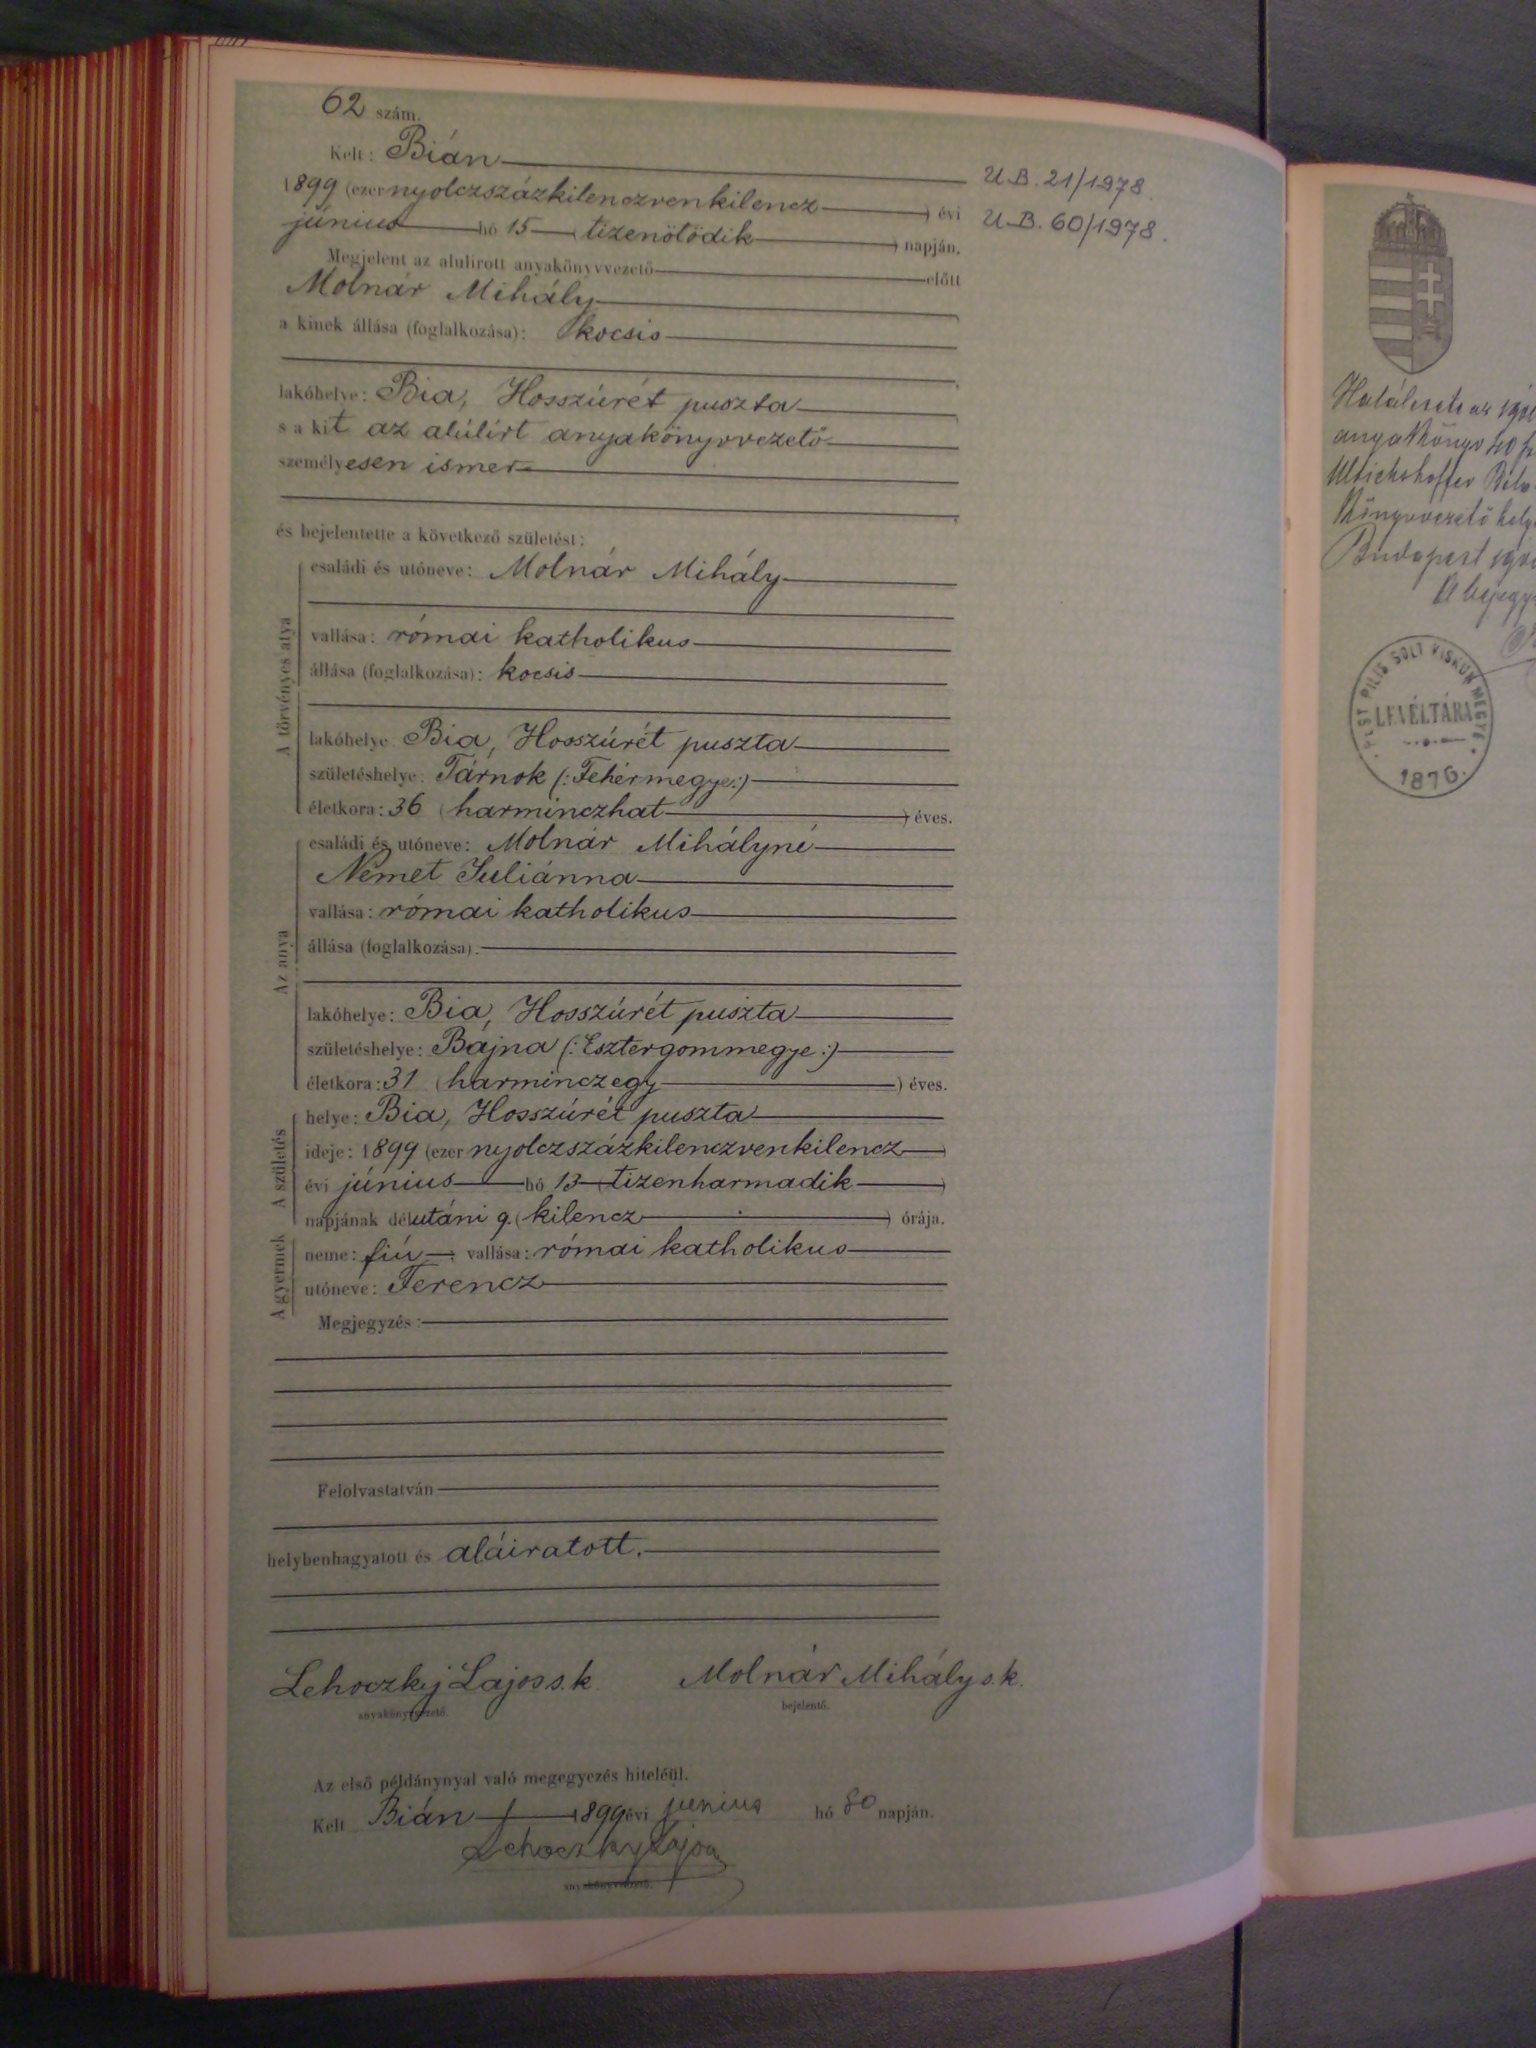 62 szám.
Kelt: Bián
1899 (ezer nyolczszázkilenczvenkilencz) évi
június hó 15 (tizenötödik) napján.
Megjelent az alulirott anyakönyvvezető előtt
Molnár Mihály
a kinek állása (foglalkozása): kocsis
lakóhelye: Bia, Hosszúrét puszta
s a kit az alúlírt anyakönyvvezető
személyesen ismer
és bejelentette a következő születést:
A törvényes atya
családi és utóneve: Molnár Mihály
vallása: római katholikus
állása (foglalkozása): kocsis
lakóhelye: Bia, Hosszúrét puszta
születéshelye: Tárnok (: Fehérmegye :)
életkora: 36 (harminczhat) éves.
Az anya
családi és utóneve: Molnár Mihályné
Német Juliánna
vallása: római katholikus
állása (foglalkozása):
lakóhelye: Bia, Hosszúrét puszta
születéshelye: Bajna (: Esztergommegye :)
életkora: 31 (harminczegy) éves.
A születés
helye: Bia, Hosszúrét puszta
ideje: 1899 (ezer nyolczszázkilenczvenkilencz)
évi június hó 13 (tizenharmadik)
napjának délutáni 9. (kilencz) órája.
A gyermek
neme: fiú vallása: római katholikus
utóneve: Ferencz
Megjegyzés:
Felolvastatván
helybenhagyatott és aláiratott.
Lehoczky Lajos s.k. Molnár Mihály s.k.
anyakönyvvezető. bejelentő.
Az első példánynyal való megegyezés hiteléül.
Kelt Bián 1899 évi junius hó napján.
Lehoczky Lajos
anyakönyvvezető.
U.B. 21/1978.
U.B. 60/1978.
anyakönyv
Budapest
PEST PILIS SOLT KISKUN MEGYE
LEVÉLTÁRA
1876.